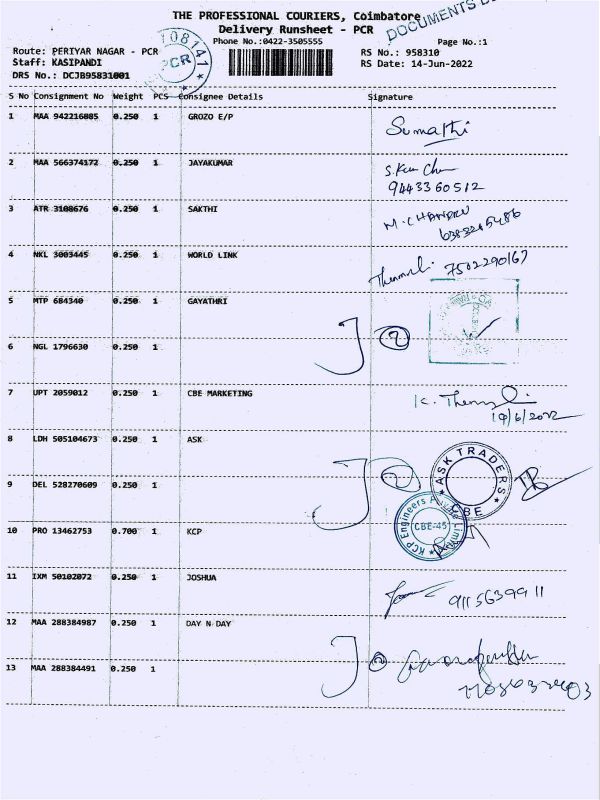 THE PROFESSIONAL COURIERS, Coimbatore
DOCUMENTS
Delivery Runsheet - PCR
Phone No.:0422-3505555
Page No.:1
Route: PERIYAR NAGAR - PCR
RS No.: 958310
Staff: KASIPANDI
RS Date: 14-Jun-2022
DRS No.: DCJB95831001
108141
PCR
S No Consignment No Weight PCS Consignee Details Signature
1 MAA 942216885 0.250 1 GROZO E/P
Sumathi
2 MAA 566374172 0.250 1 JAYAKUMAR
9443360512
3 ATR 3108676 0.250 1 SAKTHI
4 NKL 3003445 0.250 1 WORLD LINK
7502290167
5 MTP 684340 0.250 1 GAYATHRI
6 NGL 1796630 0.250 1
2
7 UPT 2059012 0.250 1 CBE MARKETING
19/6/2022
8 LDH 505104673 0.250 1 ASK
2
ASK TRADERS
CBE
9 DEL 528270609 0.250 1
KCP Engineers Private Limited
CBE-45
10 PRO 13462753 0.700 1 KCP
11 IXM 50102072 0.250 1 JOSHUA
9115639911
12 MAA 288384987 0.250 1 DAY N DAY
13 MAA 288384491 0.250 1